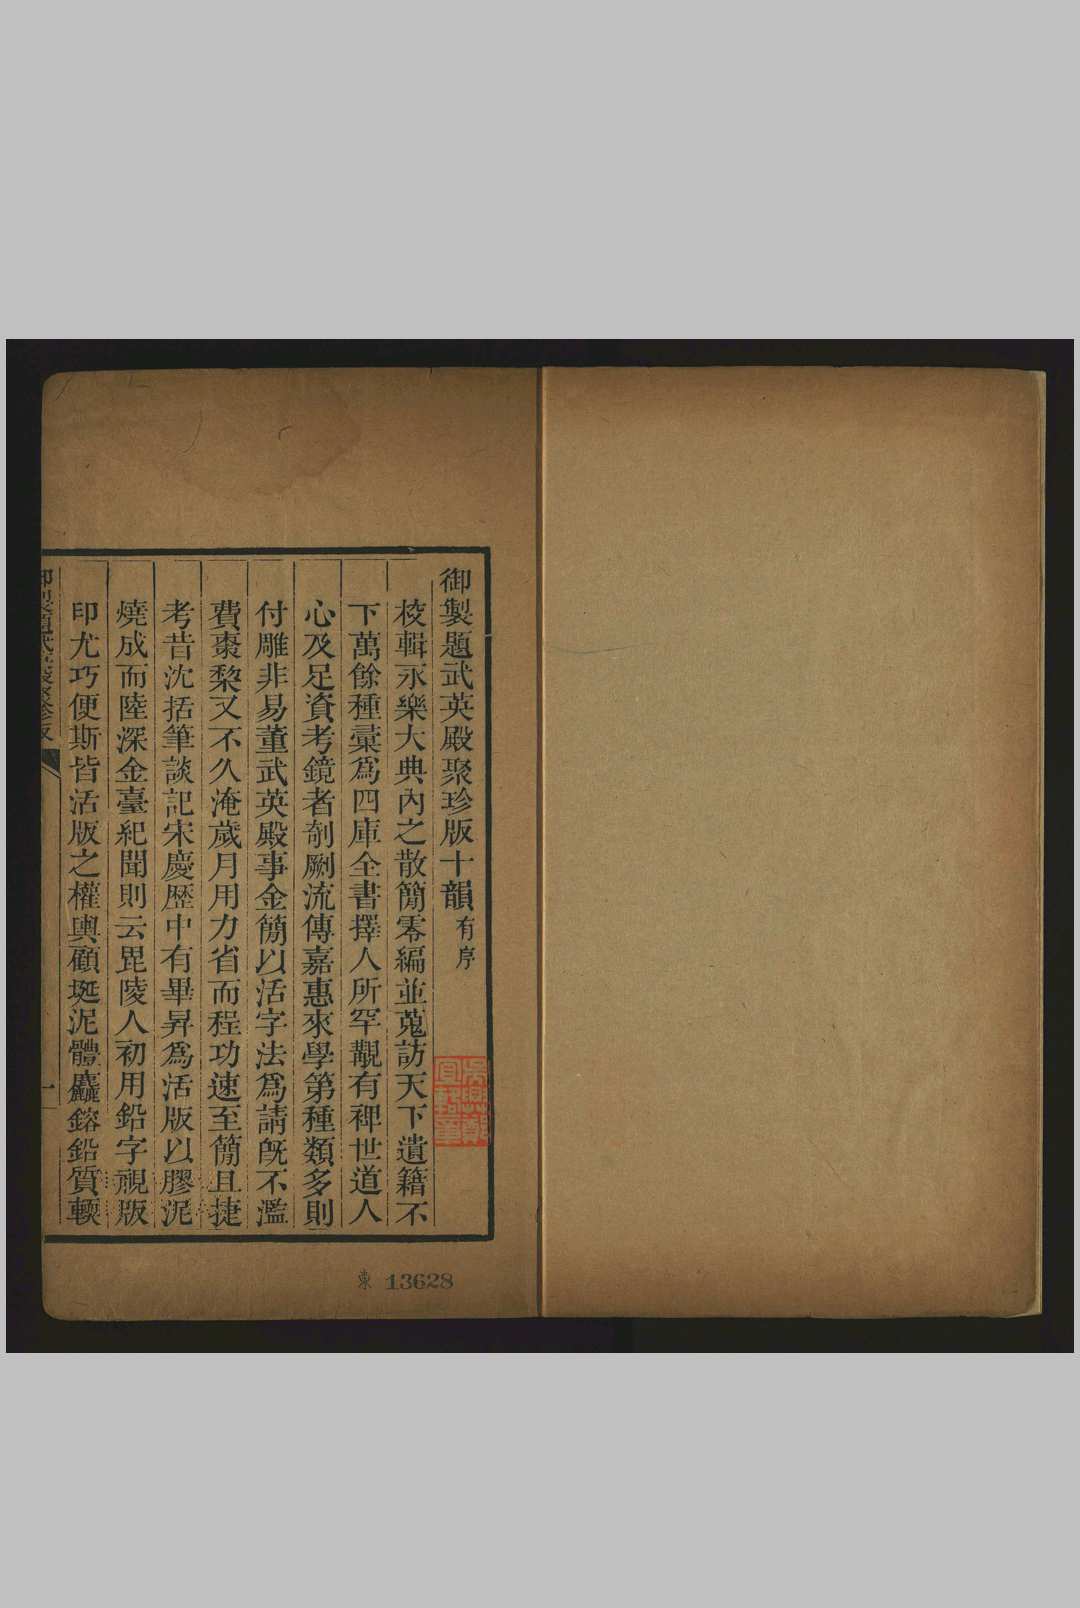 御製題武英殿聚珍版十韻有序
校輯永樂大典內之散簡零編並蒐訪天下遺籍不
下萬餘種彚為四庫全書擇人所罕覯有裨世道人
心及足資考鏡者剞劂流傳嘉惠來學第種類多則
付雕非易董武英殿事金簡以活字法為請旣不濫
費棗棃又不久淹歲月用力省而程功速至簡且捷
考昔沈括筆談記宋慶歷中有畢昇為活版以膠泥
燒成而陸深金臺紀聞則云毘陵人初用鉛字視版
印尤巧便斯皆活版之權輿顧埏泥體麤鎔鉛質輭
御製題武英殿聚珍版
一
東 13628